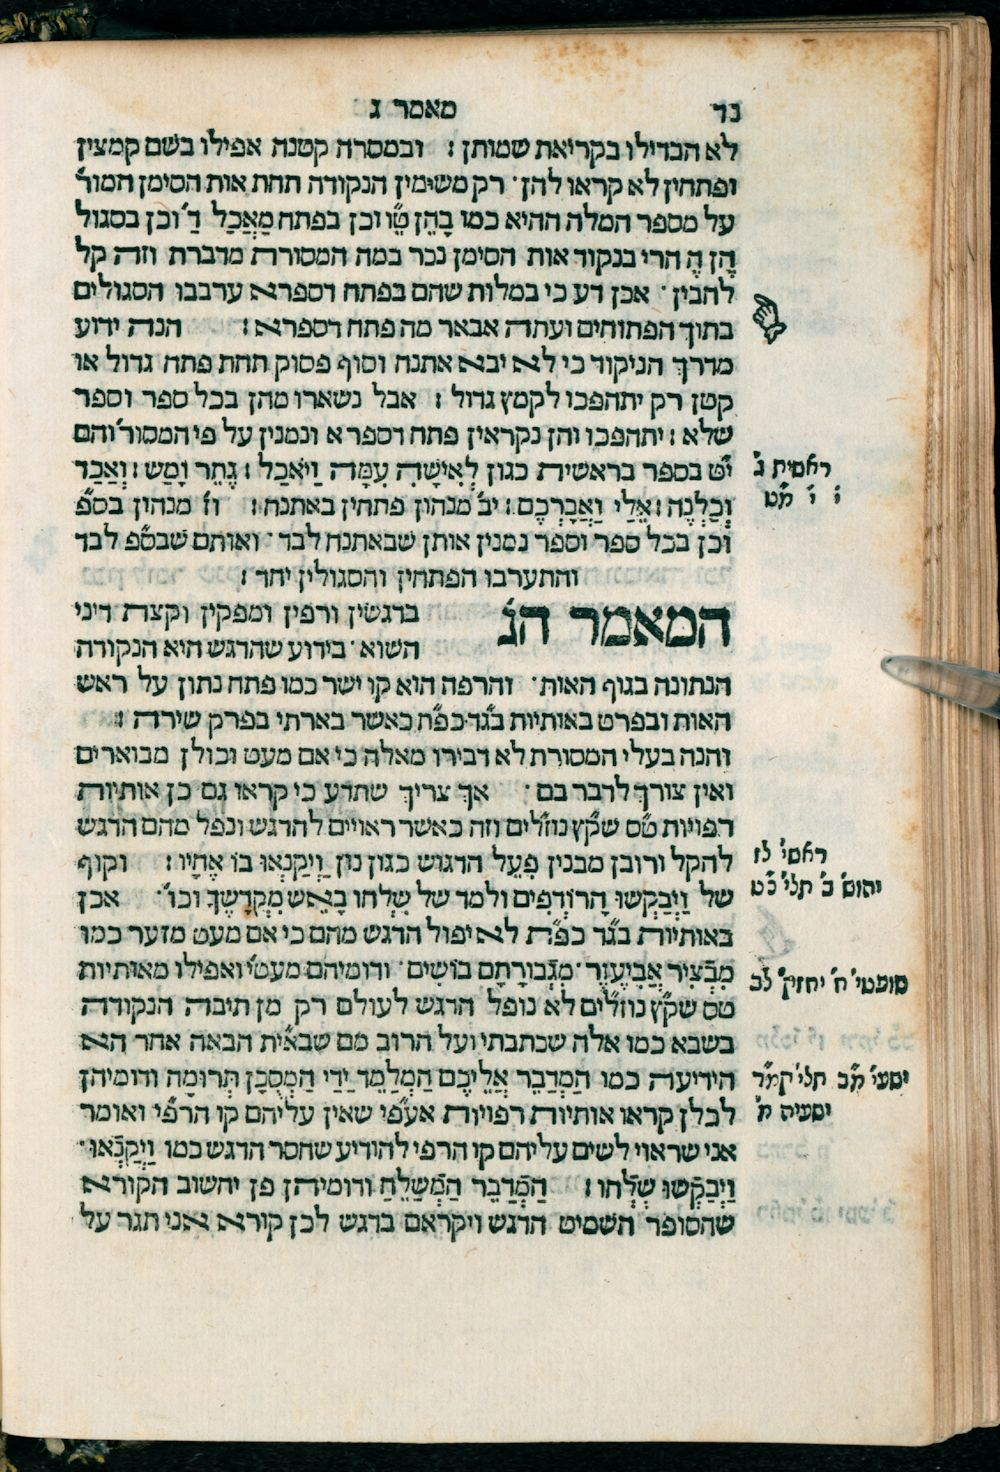 נד מאמר ג
לא הבדילו בקריאת שמותן : ובמסרה קטנה אפילו בשם קמצין
ופתחין לא קראו להן׳ רק משימין הנקודה תחת אות הסימן המור״
על מספר המלה ההיא כמו בָהֵן טֵ״ו וכן בפתח מַאֲכַל דַ׳ וכן בסגול
הֶן הֶ הרי בנקוד אות הסימן נכר במה המסורה מדברת וזה קל
להבין׳ אכן דע כי במלות שהם בפתח דספרא ערבבו הסגולים
בתוך הפתוחים ועתה אבאר מה פתח דספרא : הנה ידוע
מדרך הניקוד כי לא יבא אתנח וסוף פסוק תחת פתח גדול או
קטן רק יתהפכו לקמץ גדול : אבל נשארו מהן בכל ספר וספר
שלא : יתהפכו והן נקראין פתח דספרא ונמנין על פי המסור׳ והם
י״ט בספר בראשית כגון לְאִישָׁהּ עִמָּהּ וַיֹּאכַל : גֶתֶר וָמַשׁ : וְאַכַּד
וְכַלְנֶה : אֵלַי וַאֲבָרֶכֶם : י״ב מנהון פתחין באתנח : וז׳ מנהון בס״פ
וכן בכל ספר וספר נמנין אותן שבאתנח לבד׳ ואותם שבס״פ לבד
והתערבו הפתחין והסגולין יחד :
המאמר הג׳ בדגשין ורפין ומפקין וקצת דיני
השוא׳ בידוע שהדגש היא הנקודה
הנתונה בגוף האות׳ והרפה הוא קו ישר כמו פתח נתון על ראש
האות ובפרט באותיות בג״ד כפ״ת כאשר בארתי בפרק שירה :
והנה בעלי המסורת לא דבירו מאלה כי אם מעט וכולן מבוארים
ואין צורך לדבר בם׳ אך צריך שתדע כי קראו גם כן אותיות
רפויות ט״ס שק״ץ נוזלים וזה כאשר ראויים להדגש ונפל מהם הדגש
להקל ורובן מבנין פִעֵל הדגוש כגון נון וַיְקַנְאוּ בוֹ אֶחָיו : וקוף
של וַיְבַקְשׁוּ הָרוֹדְפִים ולמד של שִׁלְחוּ בָאֵשׁ מִקְדָשֶׁךָ וכו׳ אכן
באותיות בג״ד כפ״ת לא יפול הדגש מהם כי אם מעט מזער כמו
מִבְצִיר אֲבִיעֶזֶר׳ מִגְבוּרָתָם בּוֹשִׁים׳ ודומיהם מעטי׳ ואפילו מאותיות
טס שק״ץ נוזלים לא נופל הדגש לעולם רק מן תיבה הנקודה
בשבא כמו אלה שכתבתי ועל הרוב מם שבא״ית הבאה אחר הא
הידיעה כמו הַמְדַבֵר אֲלֵיכֶם הַמְלַמֵד יָדַי הַמְסֻכָּן תְּרוּמָה ודומיהן
לכלן קראו אותיות רפויות אע״פי שאין עליהם קו הרפ״י ואומר
אני שראוי לשים עליהם קו הרפי להודיע שחסר הדגש כמו וַיְקַנְאוּ׳
וַיְבַקְשׁוּ שִׁלְחוּ : הַמְדַבֵר הַמְשַׁלֵחַ ודומיהן פן יחשוב הקורא
שהסופר השמיט הדגש ויקראם בדגש לכן קורא אני תגר על
ראשית ג׳
י׳ י׳ מ״ט
ראשי׳ לז
יהוש׳ ב׳ תלי׳ כ״ט
שופטי׳ ח׳ יחזק׳ לב
ישעי׳ מ״ב תלי׳ קמ״ד
ישעיה מ׳